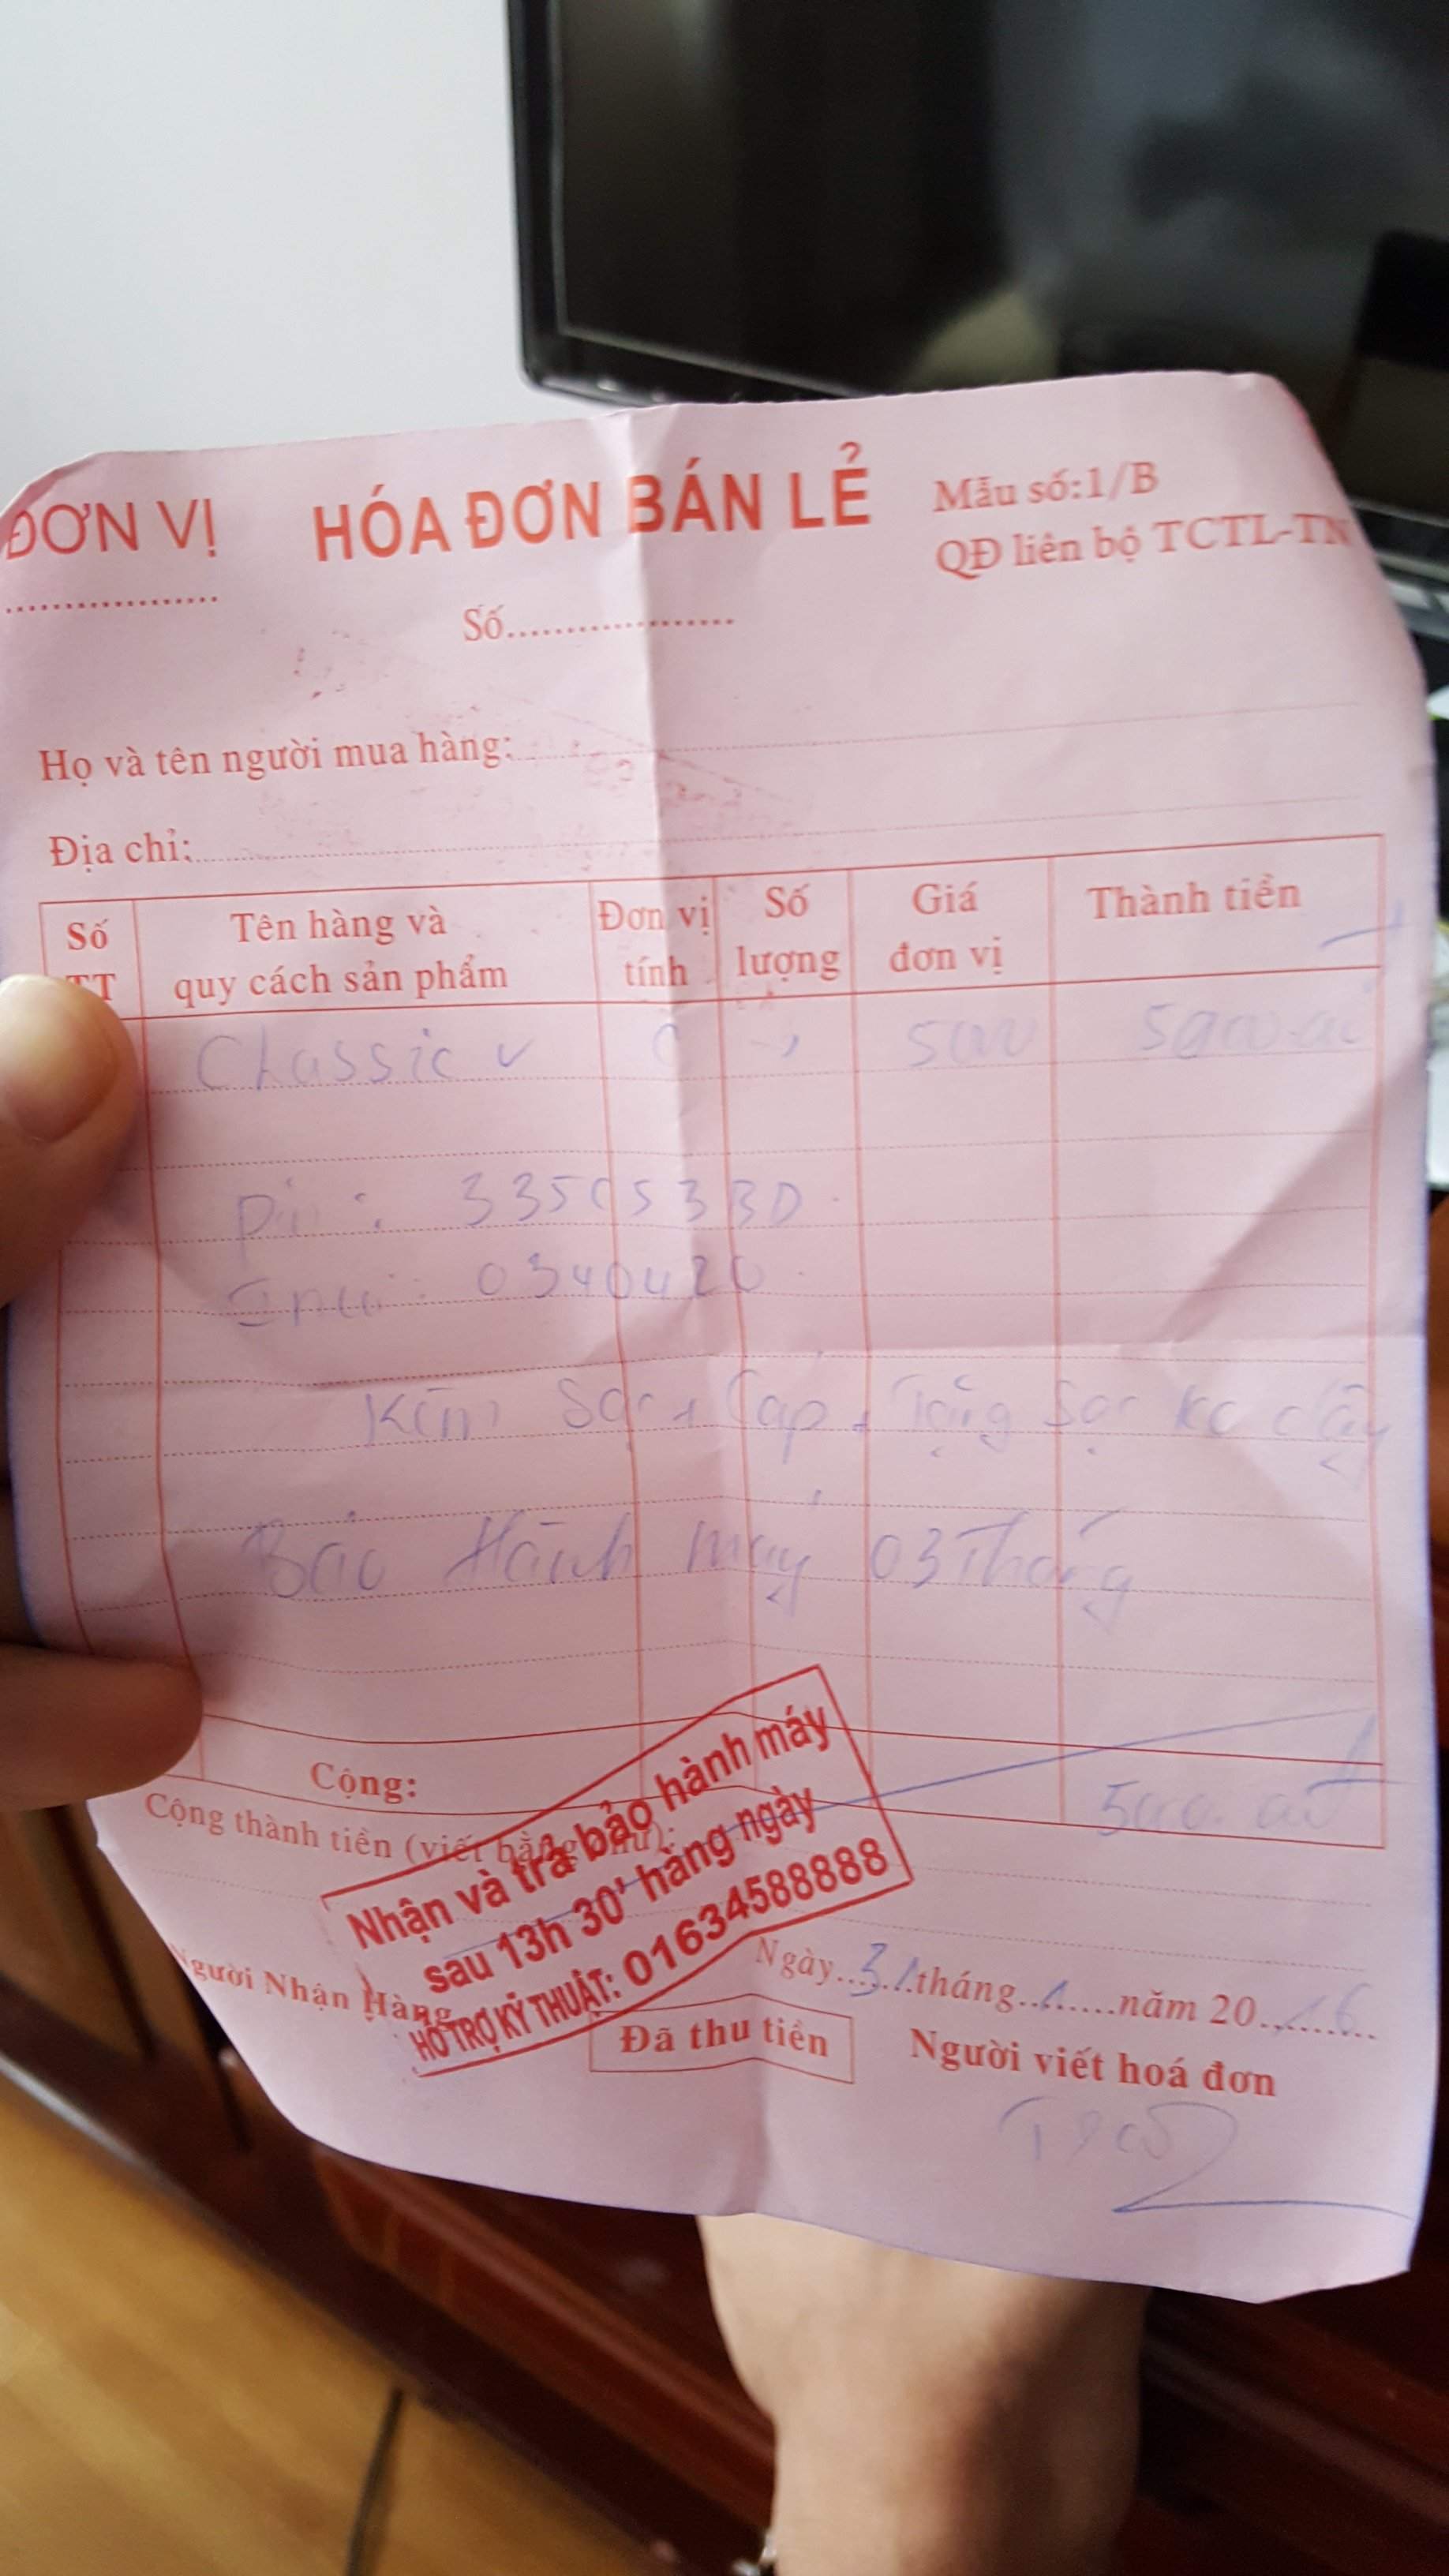 ĐƠN VỊ HÓA ĐƠN BÁN LẺ Mẫu số:1/B
QĐ liên bộ TCTL-TN
Số
Họ và tên người mua hàng:
Địa chỉ:
Số TT Tên hàng và quy cách sản phẩm Đơn vị tính Số lượng Giá đơn vị Thành tiền
Classic
Pin: 3350533D
Imei: 0340420
Kèm Sạc + Cáp + Tặng Sạc Ko dây
Bảo Hành máy 03 Tháng
Cộng:
Cộng thành tiền (viết bằng chữ):
Nhận và trả bảo hành máy
sau 13h 30' hàng ngày
HỖ TRỢ KỸ THUẬT: 01634588888
Ngày 31 tháng 1 năm 20 16
Người Nhận Hàng Đã thu tiền Người viết hoá đơn